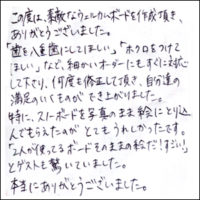 この度は、素敵なウェルカムボードを作成頂き、
ありがとうございました。
「歯を八重歯にしてほしい」「ホクロをつけて
ほしい」など、細かいオーダーにもすぐに対応
して下さり、何度も修正して頂き、自分達の
満足のいくものができ上がりました。
特に、スノーボードを写真のまま絵にとり込
んでもらえたのがとてもうれしかったです。
「2人が使ってるボードそのままの絵だ!すごい!」
とゲストも驚いていました。
本当にありがとうございました。